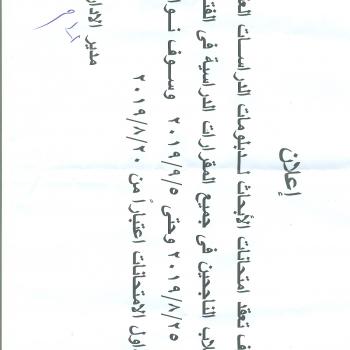 إعلان
تعقد امتحانات الأبحاث لدبلومات الدراسات
الناجحين فى جميع المقرارات الدراسية فى
٢٠١٩/٨/٢٥ وحتى ٢٠١٩/٩/٥ وسوف
الامتحانات اعتباراً من ٢٠١٩/٨/٢٠
مدير